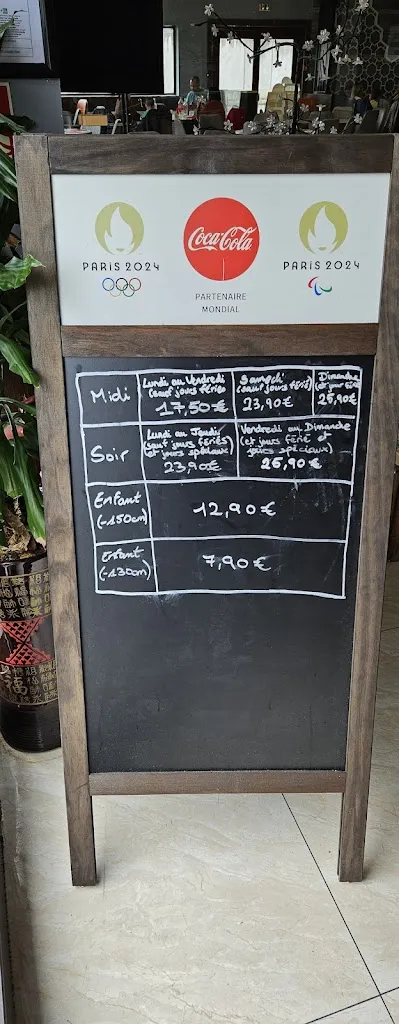 PARIS 2024
Coca-Cola
PARTENAIRE
MONDIAL
PARIS 2024
Midi
Lundi au Vendredi
(sauf jours fériés
17,50€
Samedi
(sauf jours férié)
23,90€
Dimanche
(et jour férié
26,90€
Soir
Lundi au Jeudi
(sauf jours fériés)
et jours spéciaux)
23,90€
Vendredi au Dimanche
(et jours férié et
jours spéciaux)
26,90€
Enfant
(-150cm)
12,90€
Enfant
(-130cm)
7,90€
福